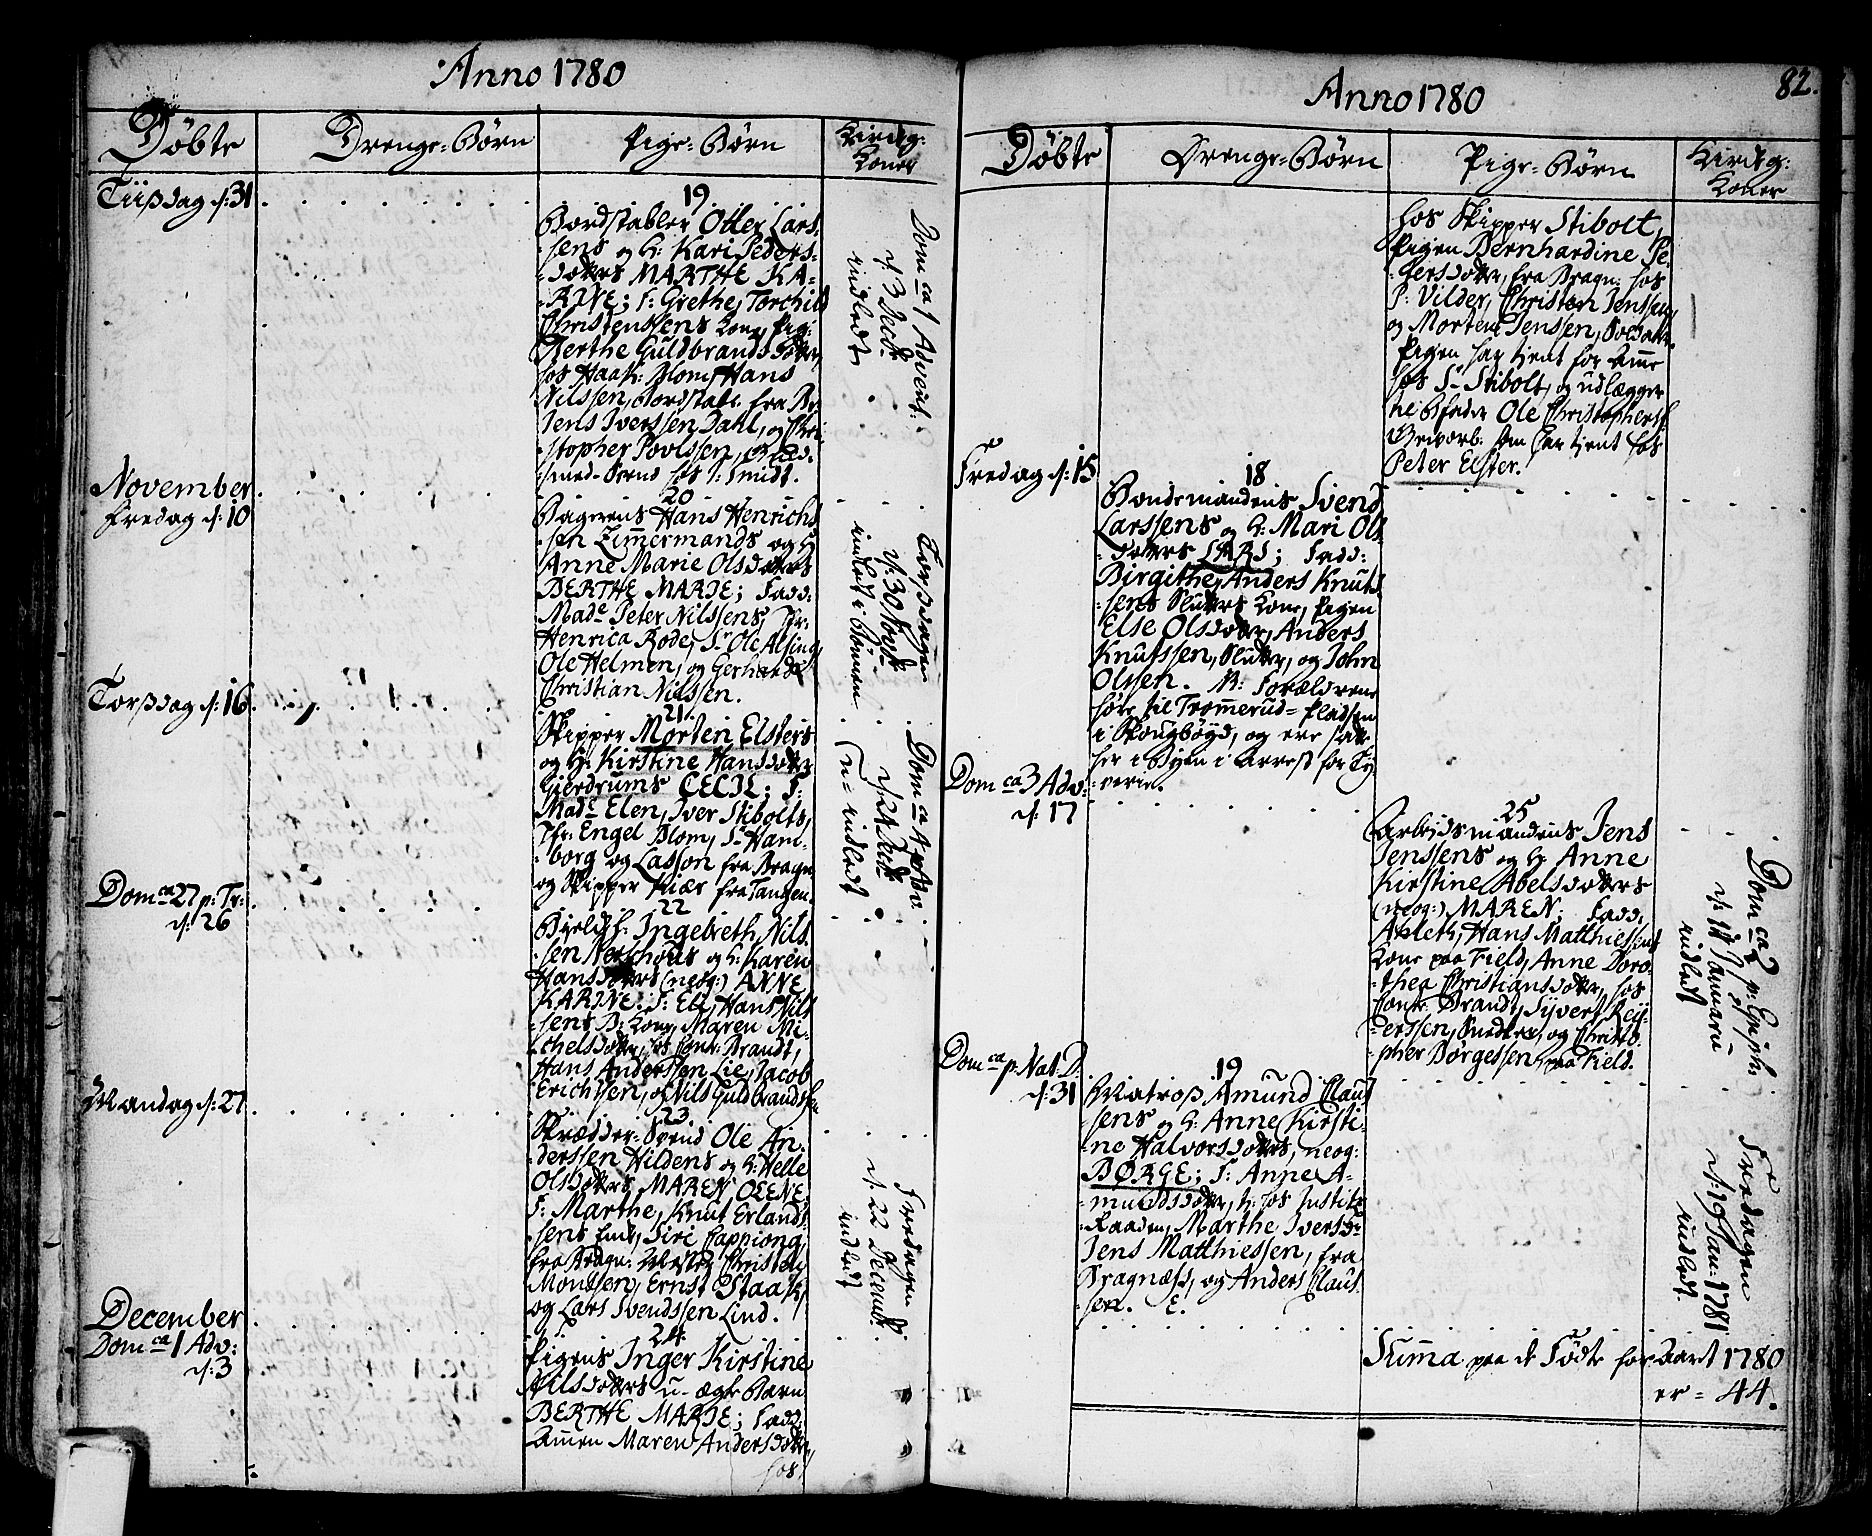 Anno 1780
Døbte
Drenge-Børn
Pige-Børn
Kirckg:
Koner
Tiisdag d: 31
19
Bordstabler Otter Lars-
sens og H: Kari Peders-
datters MARTHE KA-
RINE; F: Grethe, Torchild
Christenssens Kone, Pig:
Berthe Guldbrandsdatter,
hos Haagk: Blom, Hans
Nilssen, Bordstabl. fra Br.
Jens Iverssen Dahl, og Chri-
stopher Povlssen, Guld-
smed-Svend hos S: Smidt.
Dom ca 1 Advent.
d: 3 Decbr.
indledt
November
Fredag d: 10
20
Bagerens Hans Henrichs
sen Zimmermands og H
Anne Marie Olsdatters
BERTHE MARIE; Fadd:
Made Peter Nilssens, Jfr:
Henrica Rode, Sr Ole Alsing,
Ole Helmen, og Gerhard
Christian Nilssen.
Torsdagen
d: 30 Novbr.
indledt i Stuen
Torsdag d: 16
21.
Skipper Morten Elsters
og H: Kirstine Hansdatter
Gierdrums CECIL; F:
Made Elen, Iver Stibolts,
Jfr: Engel Blom, Sr Ham-
borg og Lasson fra Bragn
og Skipper Kiær fra Tangen.
Dom ca 4 Adv.
d: 24 Decbr
indledt
Dom ca 27 p: Tr:
d: 26
22
Ingebreth Nils-
sen Nerschous og H: Karen
Hansdatters (neog:) ANNE
KARINE. F: Eli, Hans Nils
sens B: Kone, Maren Mi-
chelsdatter, hos Cont: Brandt,
Hans Anderssen Lie, Jacob
Erichssen, og Nils Guldbrandssen
Mandag d: 27
23
Skrædder-Svend Ole An-
derssen Hildens og H: Helle
Olsdatters MAREN OLENE
F: Marthe, Knut Erlands
sens Enke, Siri Cappiong,
fra Bragn: Mester Christen
Montssen, Ernst Staack,
og Lars Svendssen Lind.
Fredagen d:
d: 22 Decembr.
indledt
December
Dom ca 1 Adv:
d: 3
24
Pigens Inger Kirstine
Nilsdatters u-ægte Barn
BERTHE MARIE; Fadd:
Ammen Maren Andersdatter,
hos
Anno 1780
82.
Døbte
Drenge-Børn
Pige-Børn
Kirckg:
Koner
hos Skipper Stibolt,
Pigen Bernhardine Pe-
dersdatter, fra Bragn: hos
P: Vilder, Christen Jenssen,
og Morten Jenssen, Soldater.
Pigen har tient for Amme
hos Sr Stibolt, og udlægger
til Bfader Ole Christophers.
Grovarb. som har tient hos
Peter Elster.
Fredag d: 15
18
Bondemandens Svend
Larssens og H: Mari Ols
datters LARS; Fadd:
Birgithe, Anders Knuts-
sens Slutters Kone, Pigen
Else Olsdatter, Anders
Knutssen, Slutter, og John
Olssen. N: Forældrene
høre til Trommerud-Pladsen
i Skougbøyd, og ere satt
her i Byen i Arrest for Ty-
verie.
Dom ca 3 Adv:
d: 17
25
Arbejdsmandens Jens
Jenssens og H: Anne
Kirstine Abelsdatters
(neog:) MAREN; Fadd:
Anleth, Hans Matthiessens
Kone paa Field, Anne Doro-
thea Christiansdatter, hos
Contr: Brandt, Syvert Rey-
erssen, Snedker, og Christo-
pher Børgessen, paa Field.
Dom ca 2 p: Epiph:
d: 14 Januarii
indledt
Dom ca p: Nat: D.
d: 31
19
Matros Amund Claus-
sens og H: Anne Kirsti-
ne Halvorsdatters, neog:
BØRGE; F: Anne A-
mundsdatter, t: hos Justitz-
Raaden, Marthe Iversdr
Jens Matthiessen, fra
Bragnæss, og Anders Claus-
sen. E.
Fredagen
d: 19 Jan: 1781
indledt.
Summa paa de Fødte for Aaret 1780
er = 44.